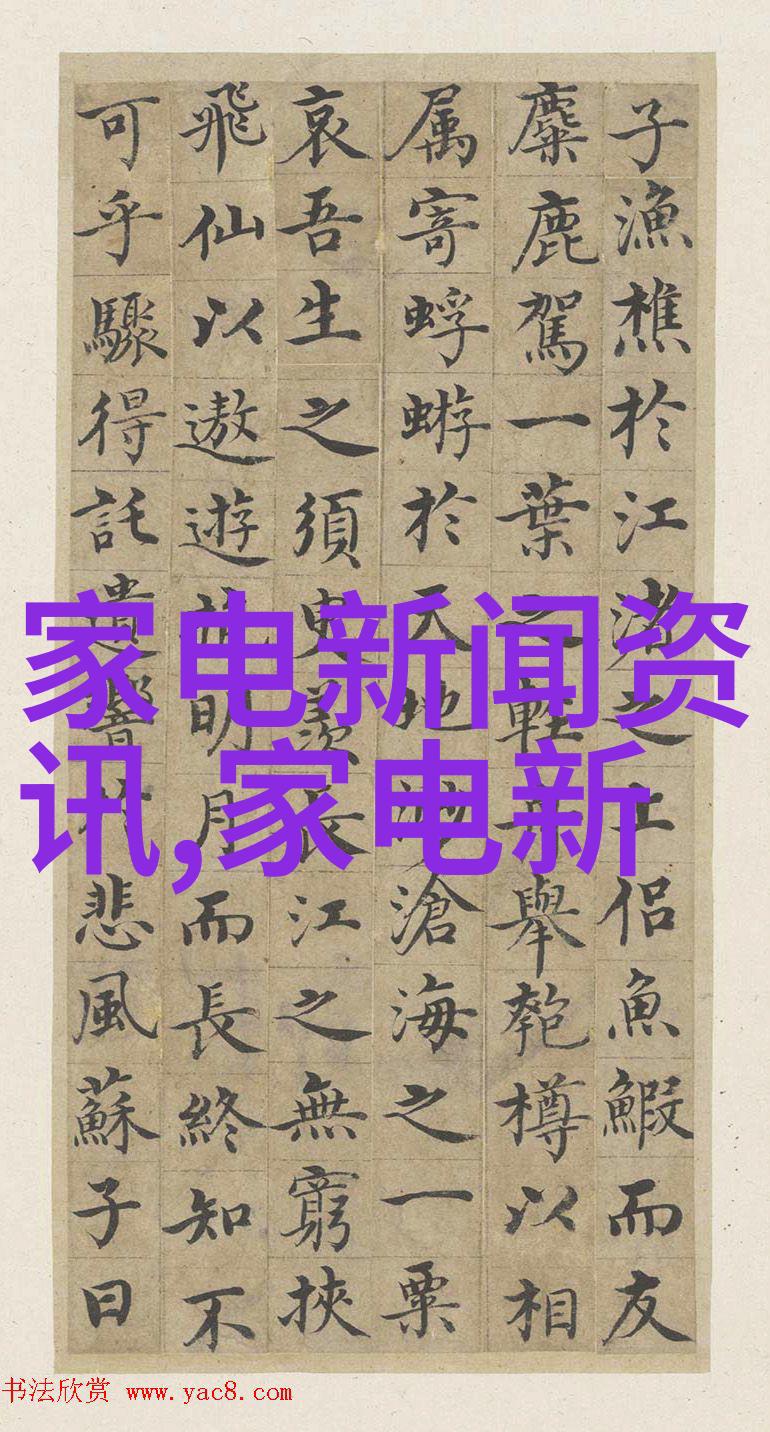 子漁樵於江渚之上侶魚鰕而友
麋鹿駕一葉之輕舟舉匏樽以相
属寄蜉蝣於天地渺滄海之一粟
哀吾生之須臾羨長江之無窮挾
飛仙以遨遊抱明月而長終知不
可乎驟得託遺響於悲風蘇子曰
家电新闻资
讯,家电新
书法欣赏 www.yac8.com